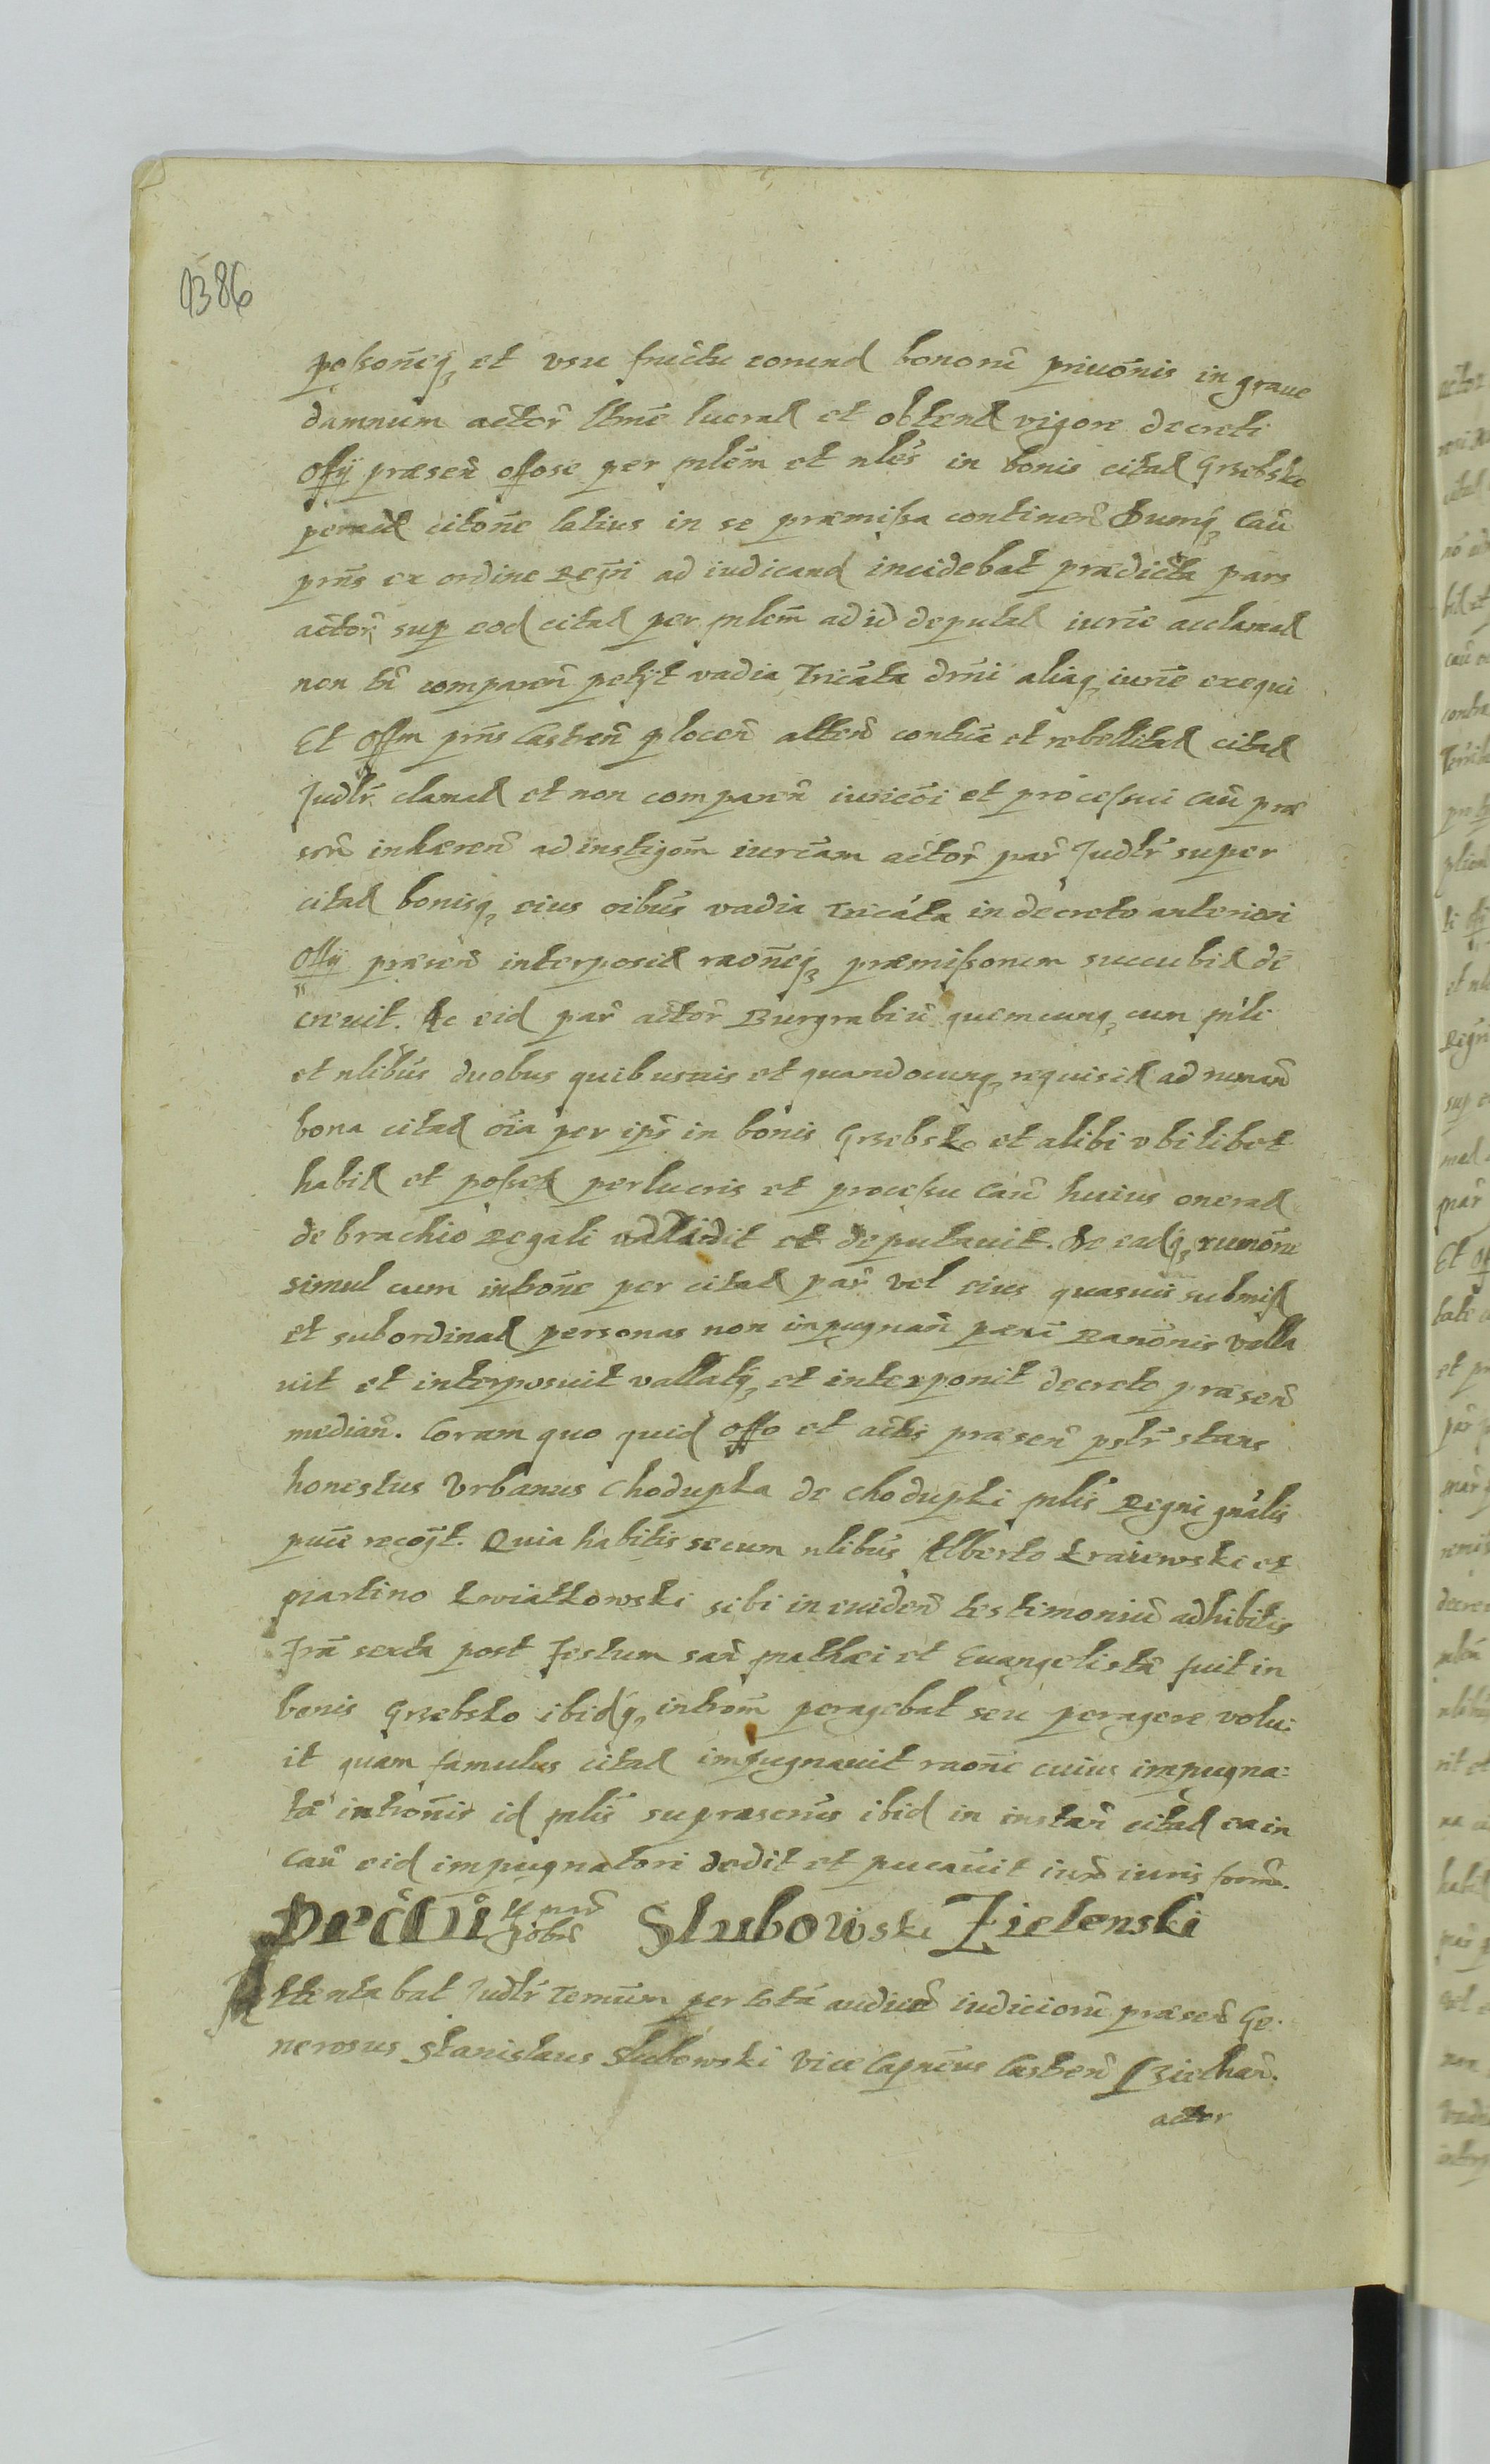 1386
possoneq3 et usu fructu eorund bonorū privōnis in grave
damnum actor ltme lucrat et obtent vigore decreti
Offij præsen offose per mlem et nles in bonis citat Grzebsko
peract citone latius in se præmissa continen Dumq3 Cau
pnns ex ordine Regri ad iudicand incidebat prædicta pars
actor sup eod citat per mlem ad id deputat iurie acclamat
non tn comparen petijt vadia Tricata dmi aliaq3 iurie exequi
Et Offm pnns Castren plocen atten contūa et rebellitat citat
Judlr clamat et non comparen iuricoi et processui cau præ
sen inhæren ad instigom iurcam actor par Judlr super
citat bonisq3 eius oibus vadia Tricata in decreto anteriori
Offij præsen interposit raoneq3 præmissorum succubit de
crevit. Ac eid par actor Burgrabiū quemcunq3 cum mli
et nlibus duobus quibusvis et quandocunq3 requisit ad runan
bona citat oia per ips in bonis Grzebsko et alibi ubilibet
habit et posset per lucris et processu Cau huius onerat
de brachio Regali addidit et deputavit. Ac eadq3 rumōne
simul cum introne per citat par vel eius quasvis submiss
et subordinat personas non impugnan pæna Banonis valla
vit et interposuit vallatq3 et interponit decreto præsen
median. Coram quo quid Offo et actis præsen pslr stans
honestus Urbanus Chodupka de Chodupki mlis Regni gnalis
pūce recogt. Quia habitis secum nlibus Alberto Kraiewski et
Martino Kwiatkowski sibi in eviden testimoniū adhibitis
Fra sexta post Festum san Mathæi et Evangelistæ fuit in
bonis Grzebsko ibidq3 introm peragebat seu peragere volu:
it quam famulus citat impugnavit raone cuius impugna:
tæ intronis id mlis suprascrus ibid in instan citat ea in
cau eid impugnatori dedit et pucavit iux iuris form.
Decrtū Slubowski Zielenski
Attentabat Judlr Temūm per totā audien iudiciorū præsen Ge:
nerosus Stanislaus Slubowski Vice Capneus Castren
actor